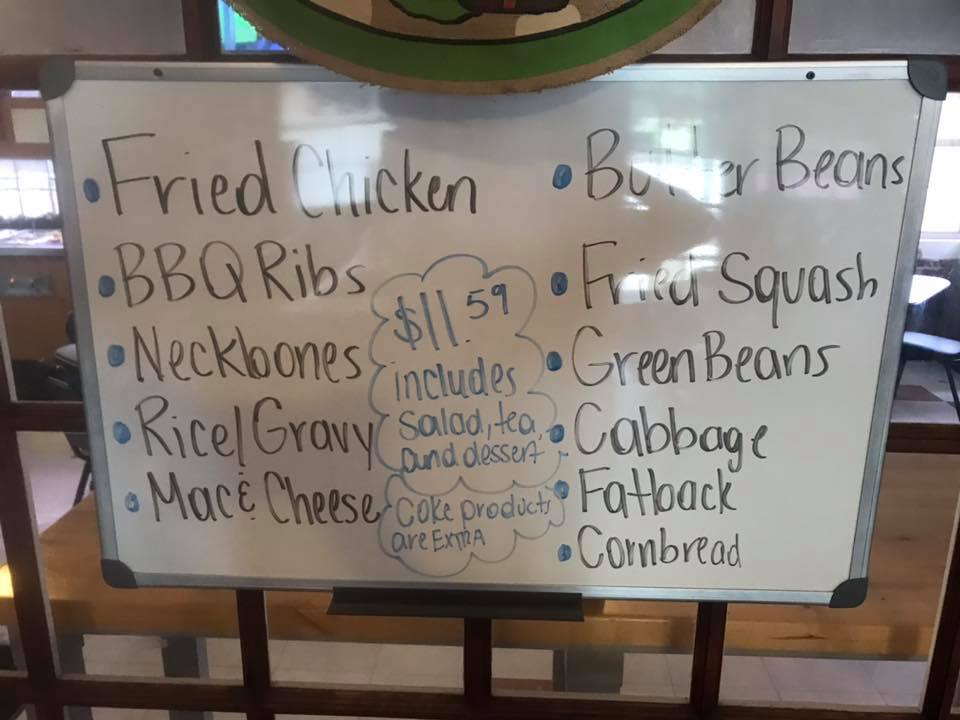 • Fried Chicken
• BBQ Ribs
• Neckbones
• Rice/Gravy
• Mac & Cheese
$11.59
includes
salad, tea,
and dessert
Coke products
are ExtrA
• Butter Beans
• Fried Squash
• Green Beans
• Cabbage
• Fatback
• Cornbread